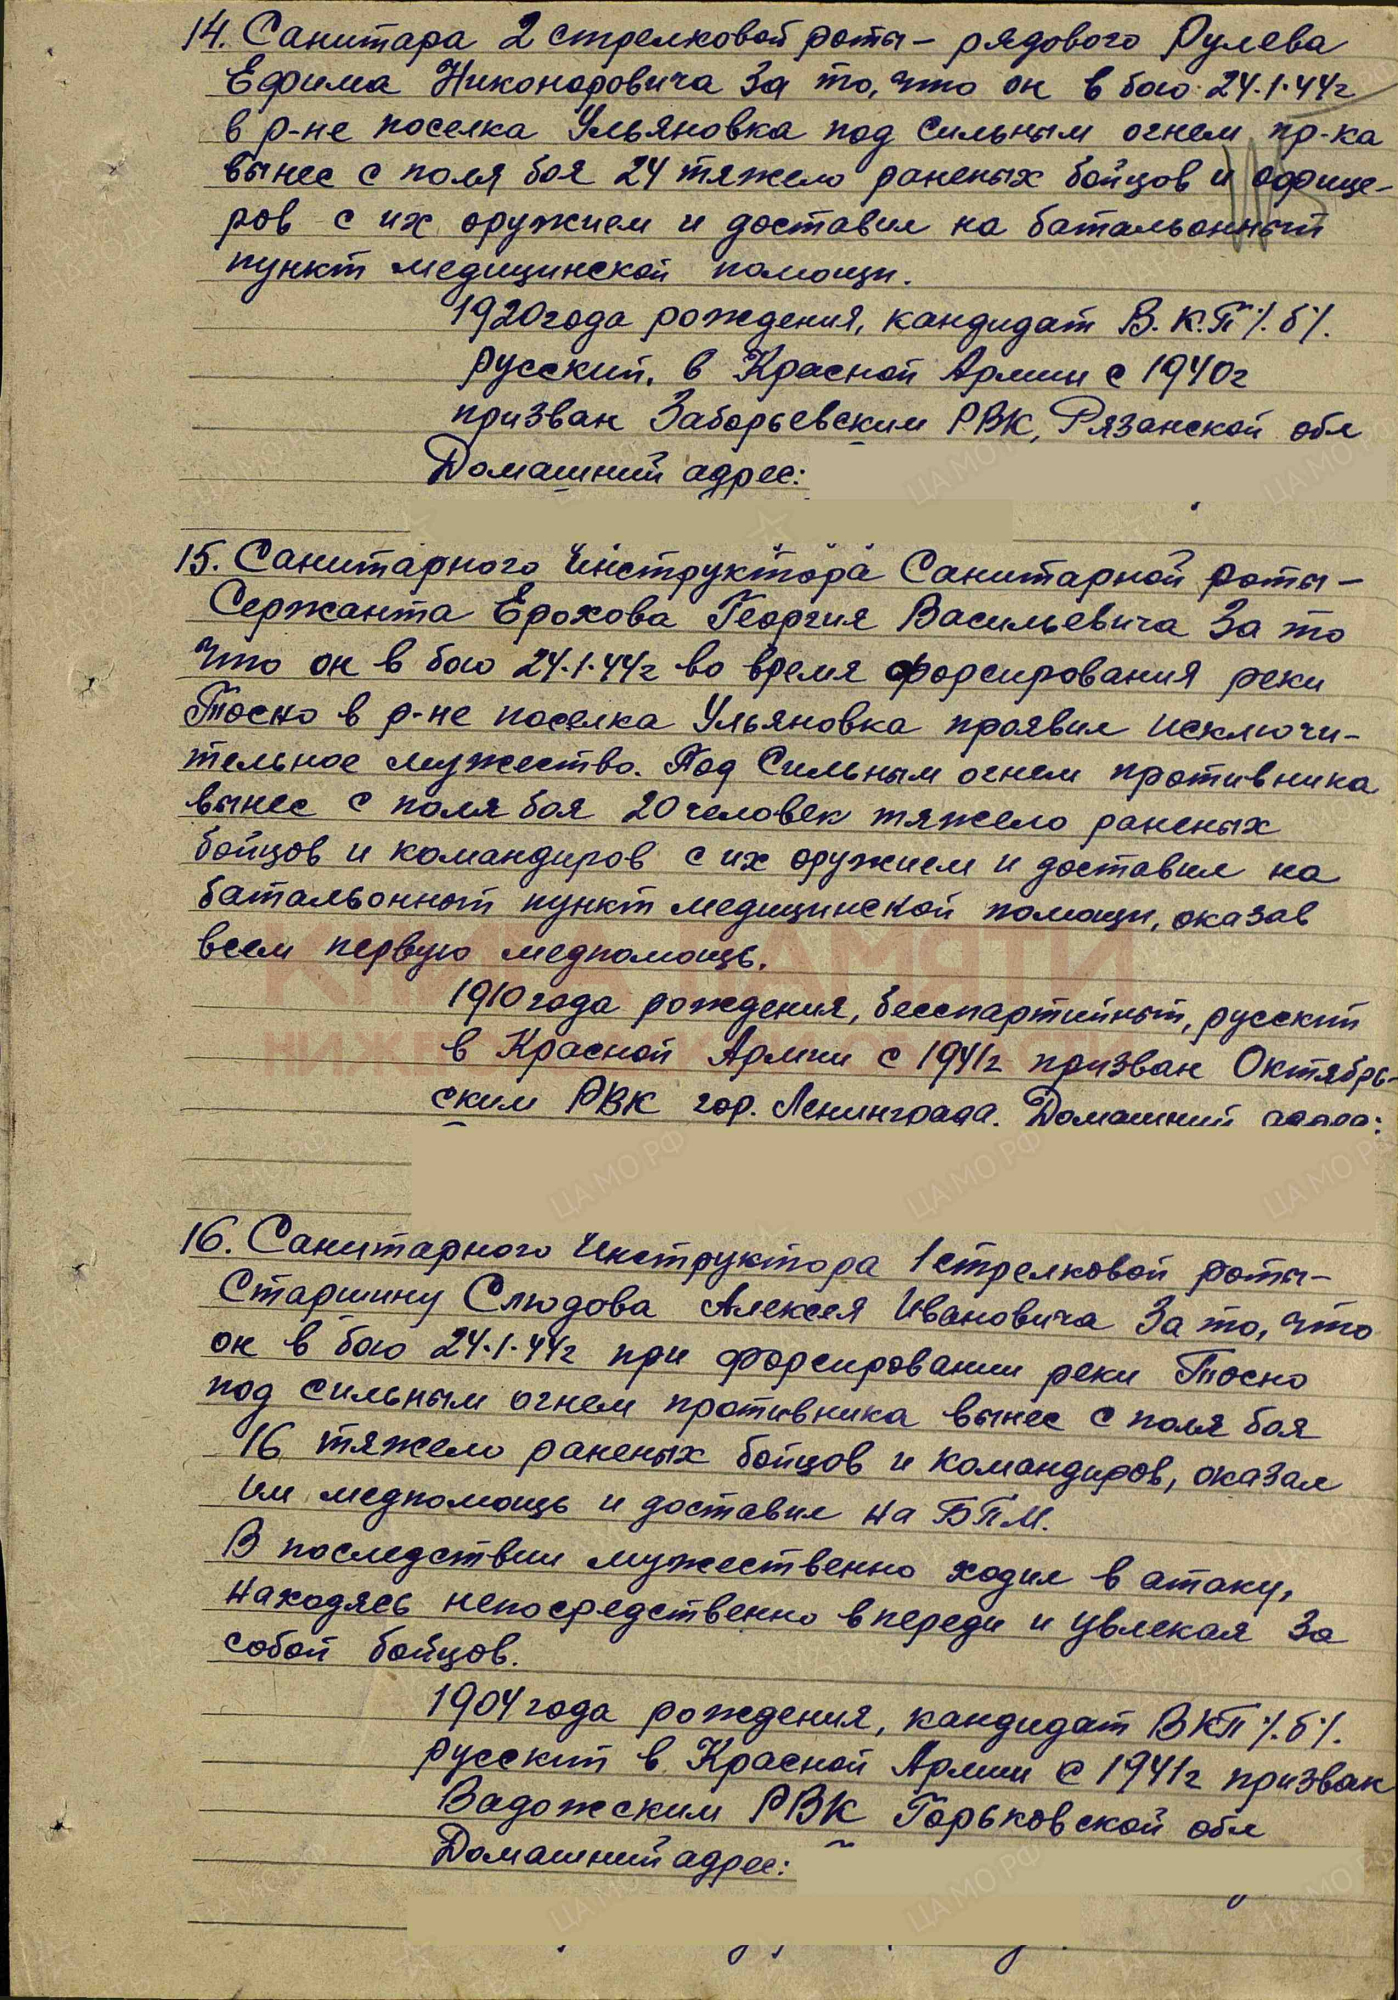 14. Санитара 2 стрелковой роты – рядового Рулева
Ефима Никоноровича За то, что он в бою 24.1.44г
в р-не поселка Ульяновка под сильным огнем пр-ка
вынес с поля боя 24 тяжело раненых бойцов и офице-
ров с их оружием и доставил на батальонный
пункт медицинской помощи.
1920 года рождения, кандидат В.К.П./.б/.
русский, в Красной Армии с 1940г
призван Заборьевским РВК, Рязанской обл
Домашний адрес:
15. Санитарного Инструктора Санитарной роты –
Сержанта Ерохова Георгия Васильевича За то
что он в бою 24.1.44г во время форсирования реки
Тосно в р-не поселка Ульяновка проявил исключи-
тельное мужество. Под Сильным огнем противника
вынес с поля боя 20 человек тяжело раненых
бойцов и командиров с их оружием и доставил на
батальонный пункт медицинской помощи, оказав
всем первую медпомощь.
КНИГА ПАМЯТИ
1910 года рождения, бесспартийный, русский
НИЖЕГОРОДСКОЙ ОБЛАСТИ
в Красной Армии с 1941г призван Октябрь-
ским РВК гор. Ленинграда. Домашний адрес:
ЦА МО РФ
16. Санитарного Инструктора 1 стрелковой роты –
Старшину Слюдова Алексея Ивановича За то, что
он в бою 24.1.44г при форсировании реки Тосно
под сильным огнем противника вынес с поля боя
16 тяжело раненых бойцов и командиров, оказал
им медпомощь и доставил на БПМ.
В последствии мужественно ходил в атаку,
находясь непосредственно впереди и увлекая За
собой бойцов.
1904 года рождения, кандидат ВКП./.б/.
русский в Красной Армии с 1941г призван
Вадожским РВК Горьковской обл
Домашний адрес:
ЦА МО РФ